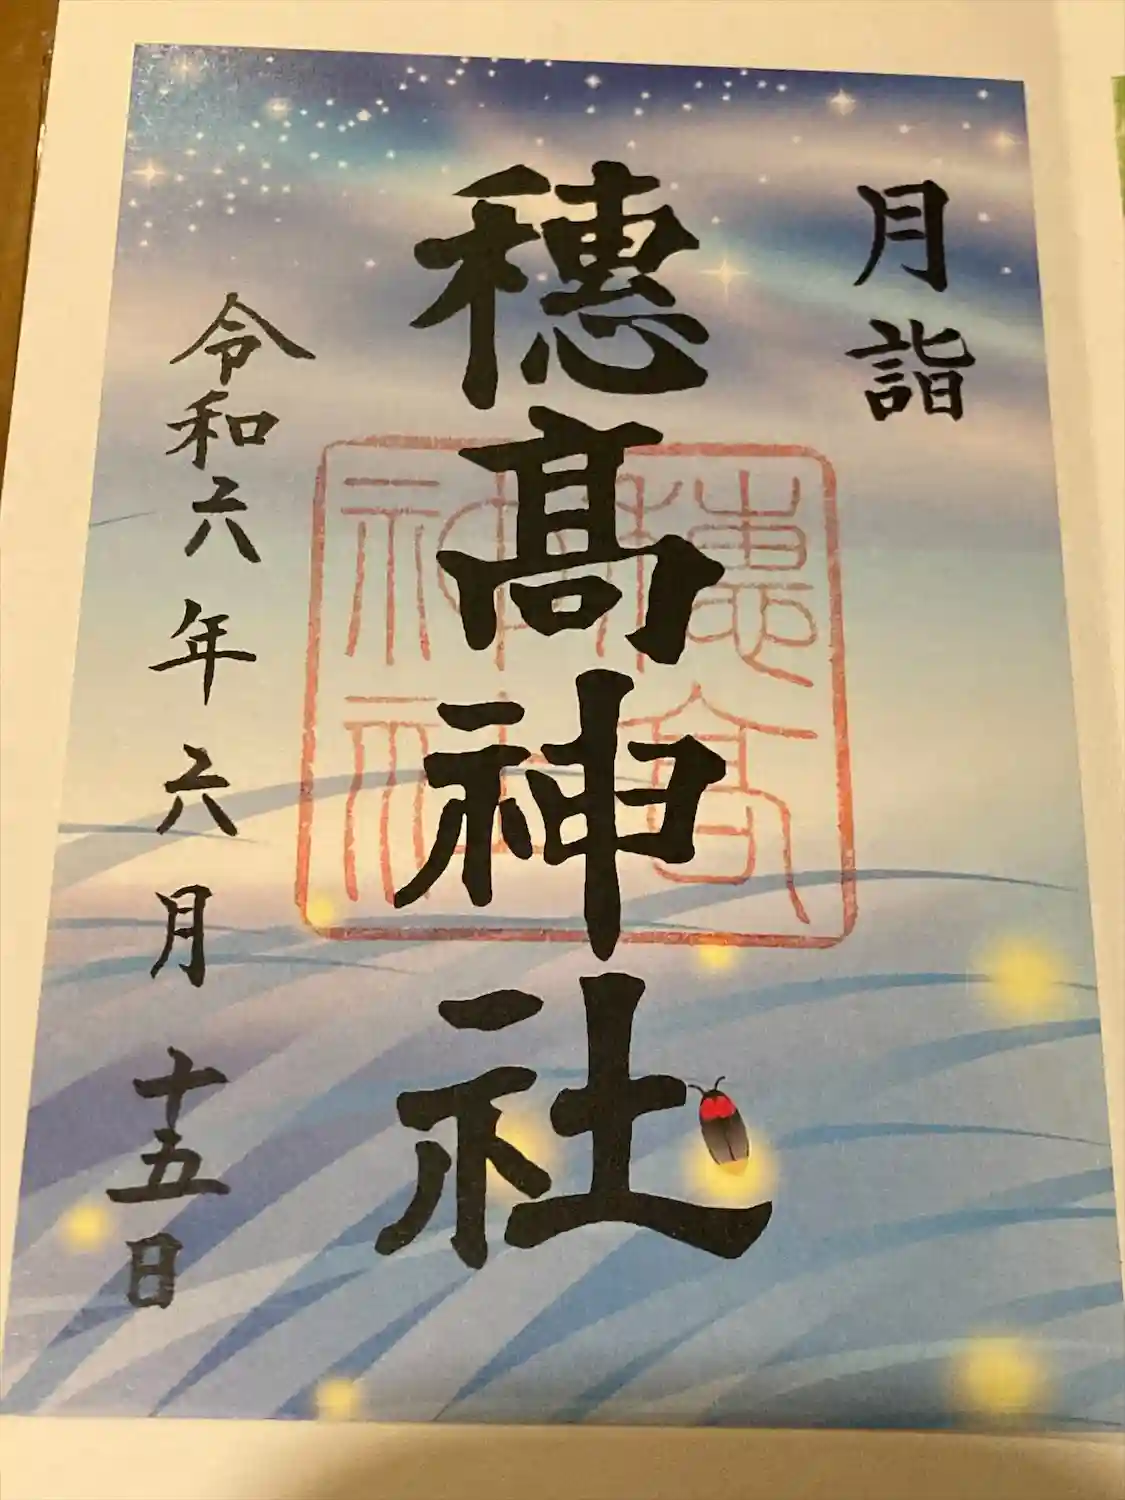 月詣
穂髙神社
令和六年六月十五日
穗高
神社